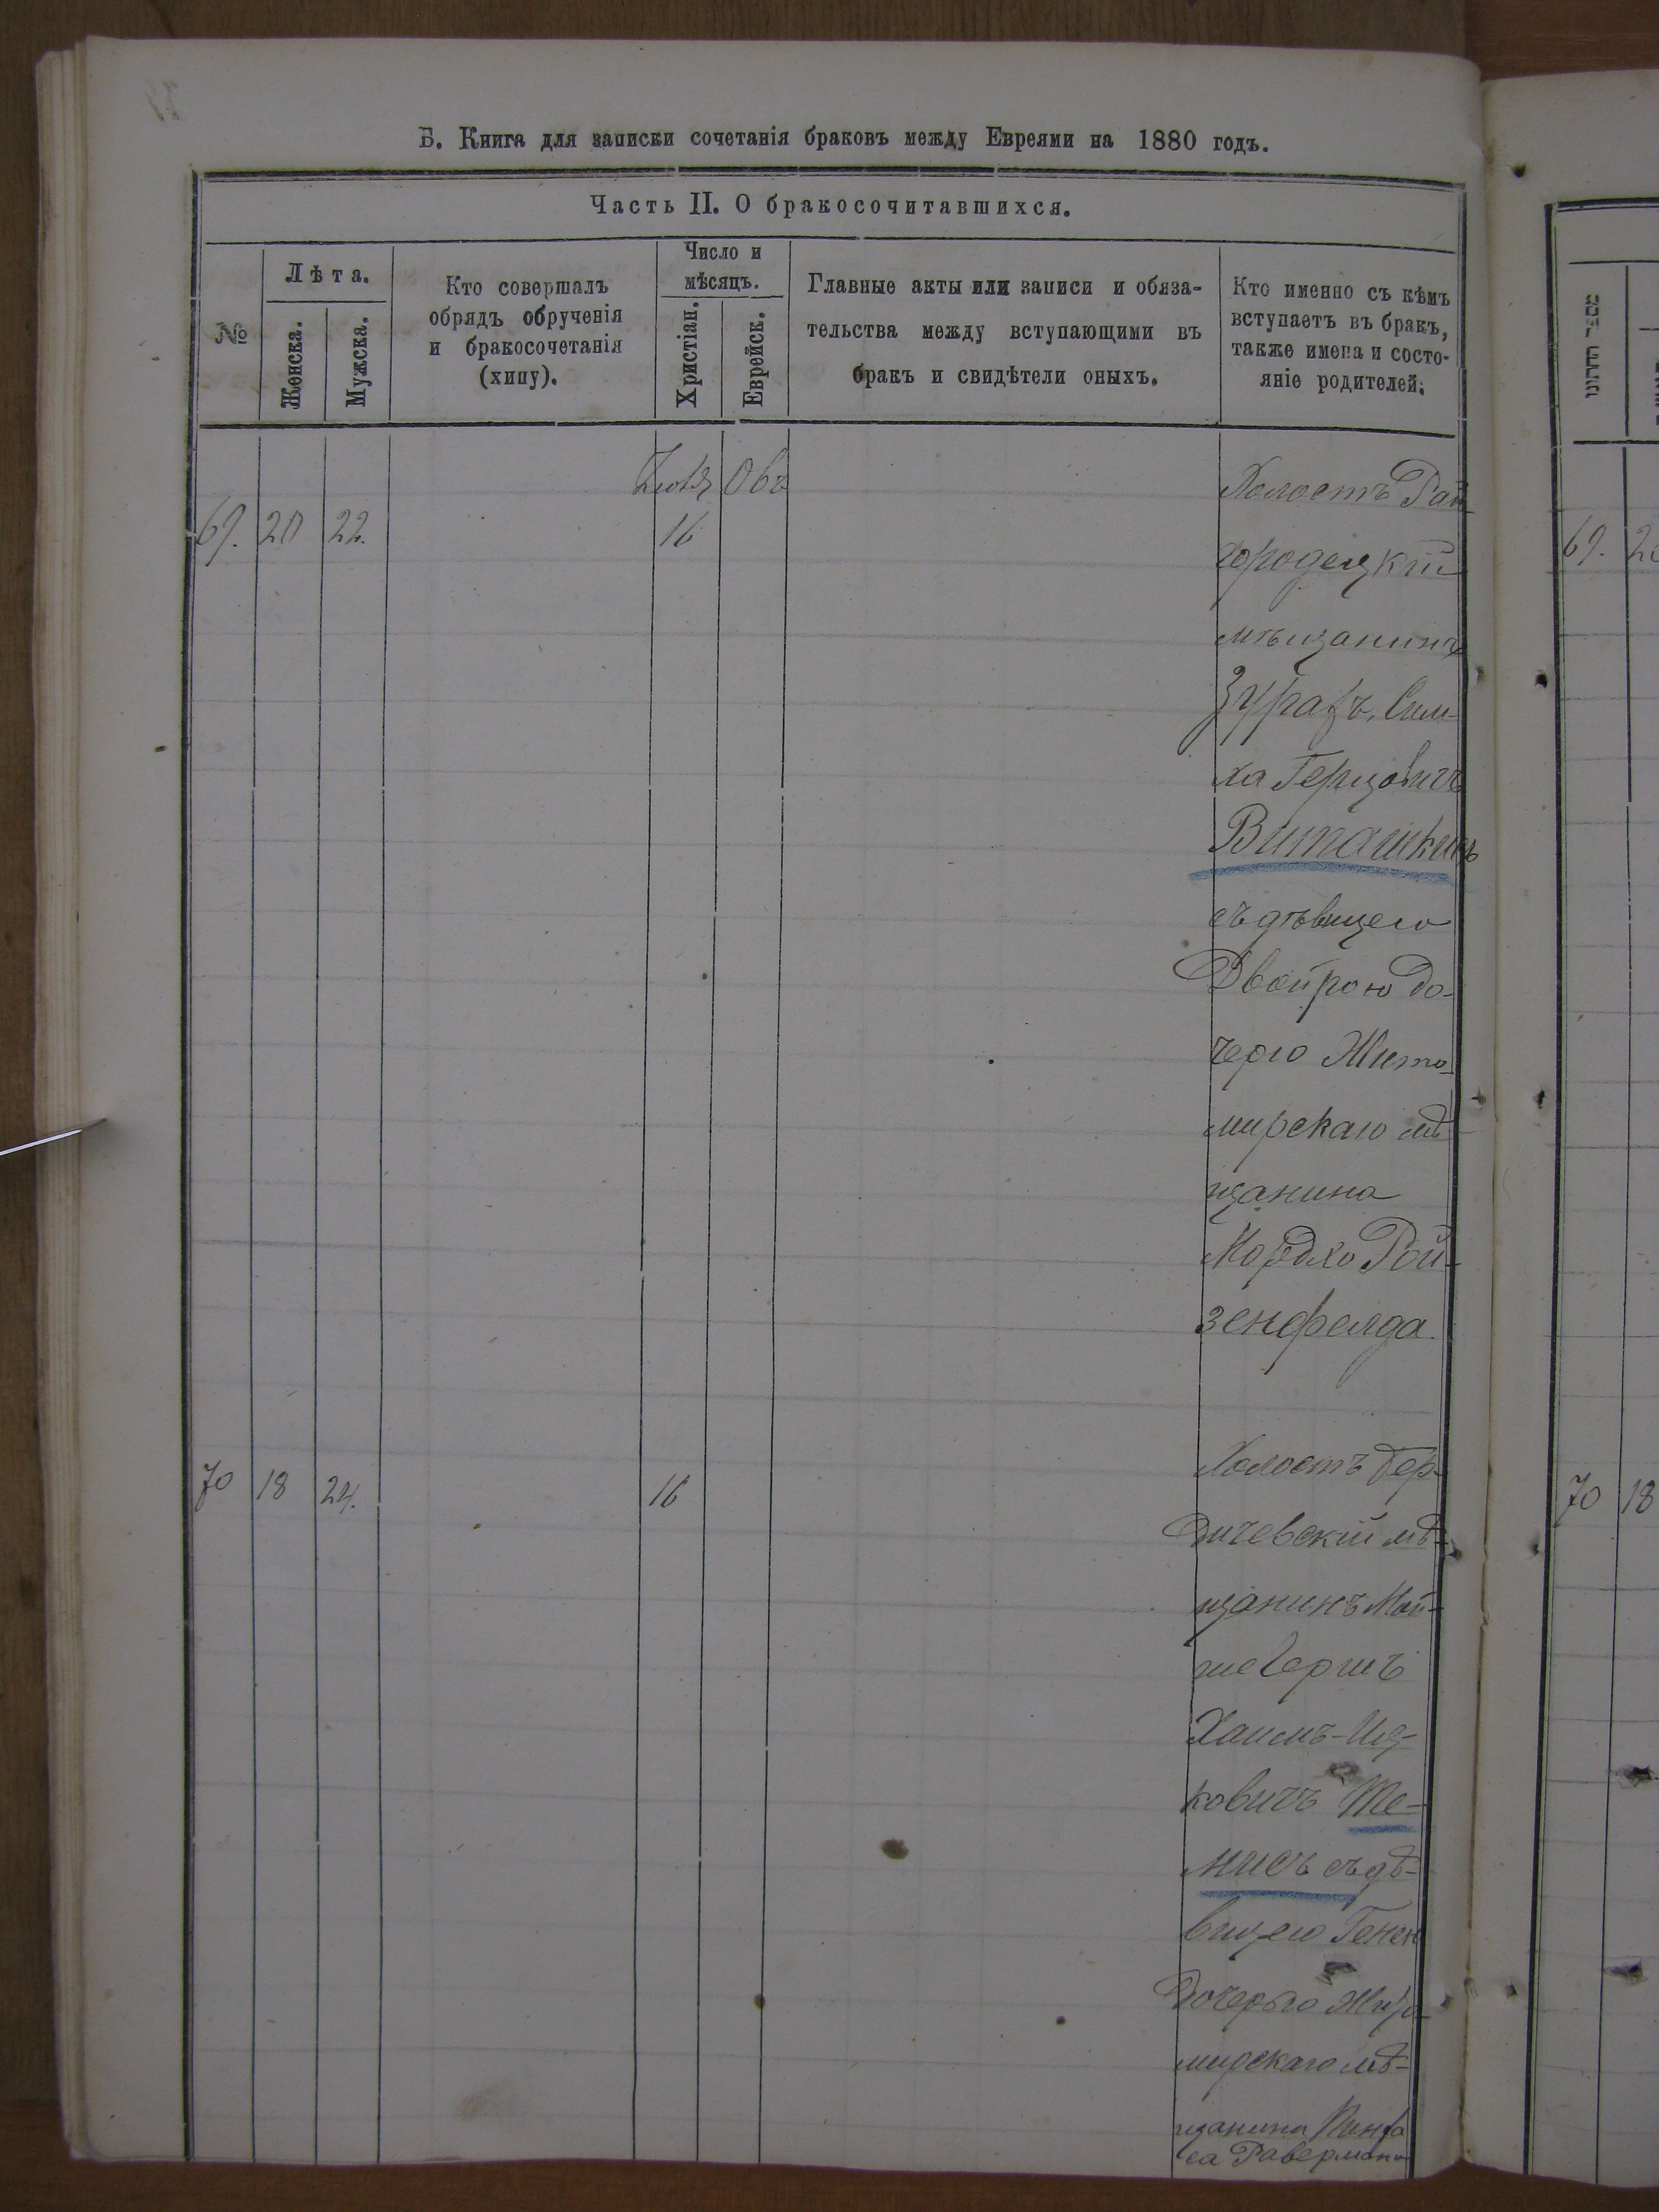 Б. Книга для записки сочетанія браковъ между Евреями на 1880 годъ.
Часть II. О бракосочитавшихся.
№
Лѣта.
Женска.
Мужска.
Кто совершалъ
обрядъ обрученія
и бракосочетанія
(хипу).
Число и
мѣсяцъ.
Христіан.
Еврейск.
Главные акты или записи и обяза-
тельства между вступающими въ
бракъ и свидѣтели оныхъ.
Кто именно съ кѣмъ
вступаетъ въ бракъ,
также имена и состо-
яніе родителей.
מספר החתונו
69. 20 22. 16
Холостъ Рай-
городецкій
мѣщанинъ
Сим-
ха Герцовичъ
Виташкинъ
съ дѣвицею
Двойрою до-
черю Жито-
мирскаго мѣ
щанина
Мордко Рой-
зенфелда.
69. 20
70 18 24. 16
Холостъ Бер-
дичевскій мѣ-
щанинъ Мой-
ше Гершъ
Хаимъ-Иц-
ковичъ Те-
нисъ съ дѣ-
вицею Генен
дочерью Жито-
мирскаго мѣ-
щанина Пинха
са Равермана
70 18